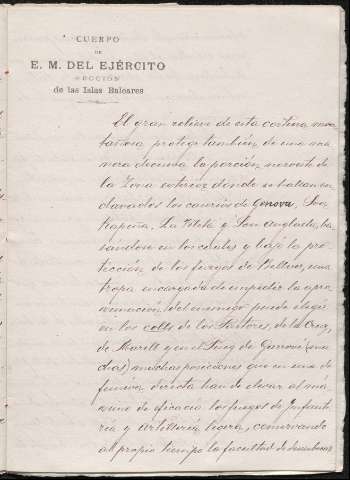 CUERPO
DE
E. M. DEL EJÉRCITO
SECCIÓN
de las Islas Baleares
El gran relieve de esta cortina mon
tañosa protege también de una ma
nera decisiva la porción noroeste de
la Zona exterior donde se hallan en
clavados los caserios de Genova, Son
Rapiña, La Vileta y Son Anglada, ba
sándose en los cuales y bajo la pro
tección de los fuegos de Bellver, una
tropa encargada de impedir la apro
ximación del enemigo puede elegir
en los colls de los Pastores, de la Creu,
de Morell y en el Puig de Garrové
muchas posiciones que en una de
fensiva directa han de elevar al má
ximo de eficacia los fuegos de Infante
ría y Artillería ligera, conservando
al propio tiempo la facultad de